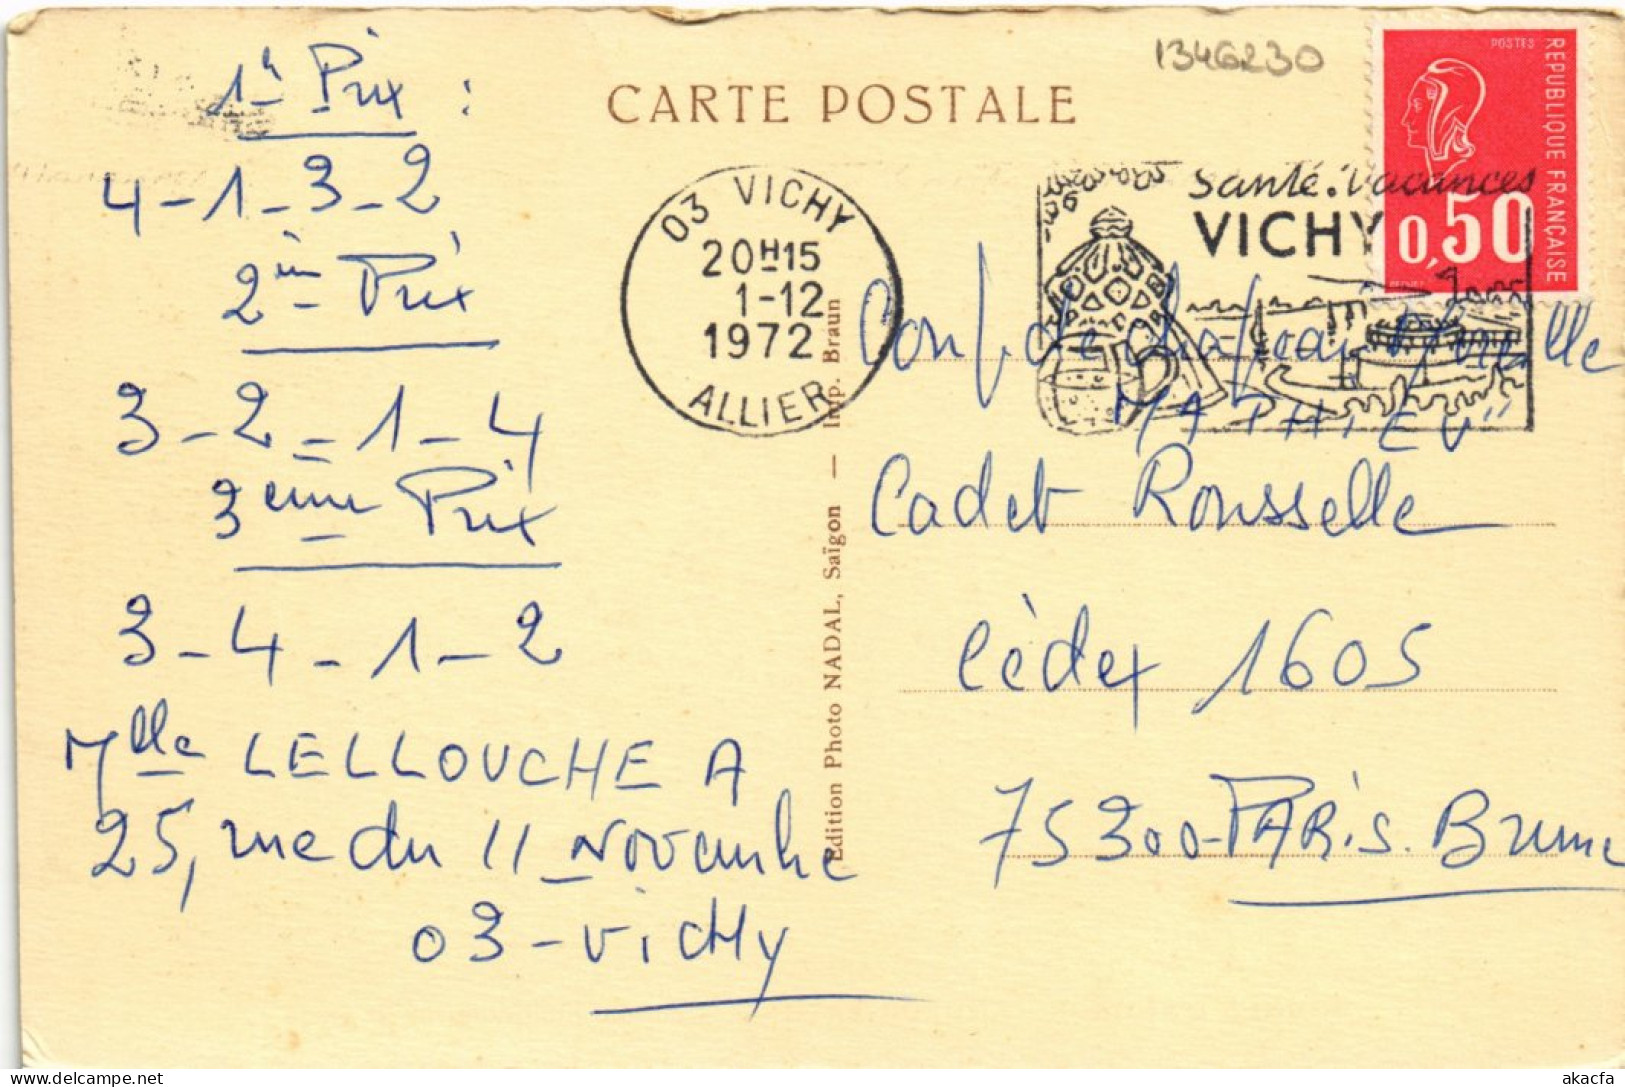 1346230
CARTE POSTALE
POSTES
REPUBLIQUE FRANÇAISE
0,50
03 VICHY
20H15
1-12
1972
ALLIER
Santé. Vacances
VICHY
1è Prix :
4-1-3-2
2èm Prix
3-2-1-4
3eme Prix
3-4-1-2
Mlle LELLOUCHE A
25, rue du 11 Novembre
03-Vichy
Edition Photo NADAL, Saïgon — Imp. Braun
MATHIEU"
Cadet Rousselle
Cèdex 1605
75300-PARIS. Brune
akacfa